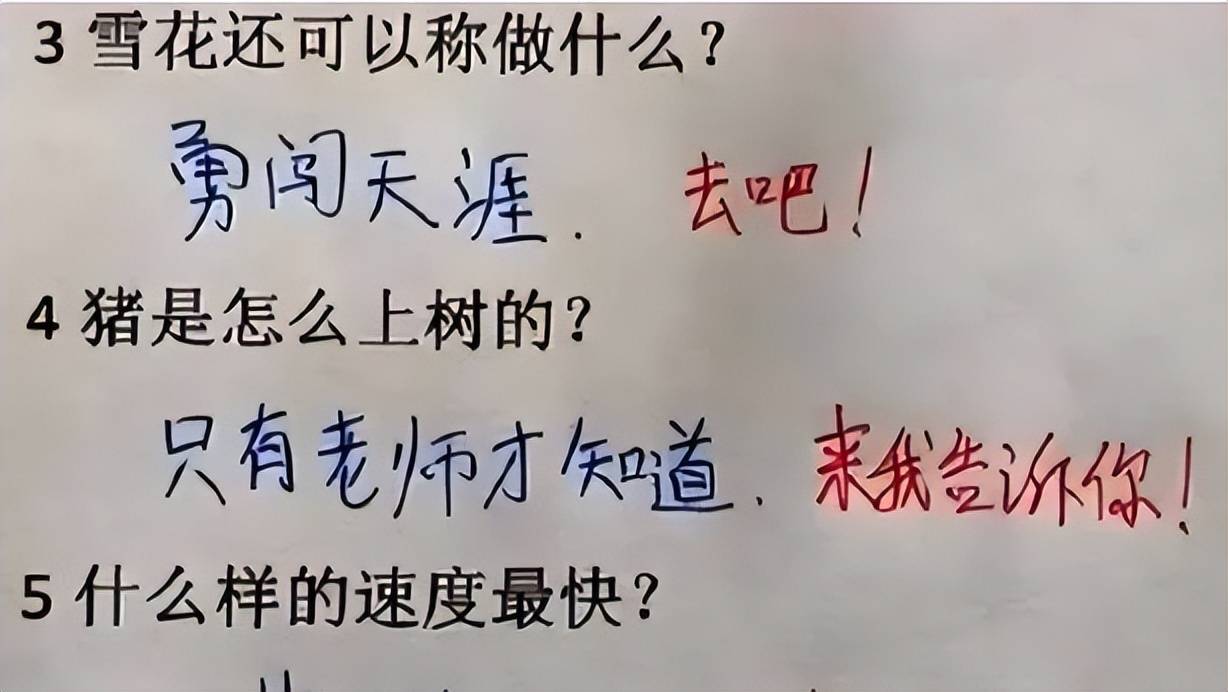 3 雪花还可以称做什么？
勇闯天涯. 去吧！
4 猪是怎么上树的？
只有老师才知道. 来我告诉你！
5 什么样的速度最快？